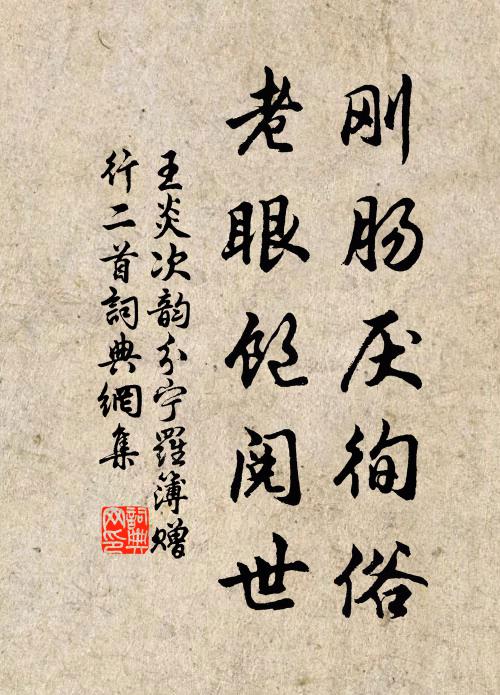 刚肠厌徇俗
老眼饱阅世
王炎次韵分宁羅簿赠
行二首詞典網集
詞典
网印